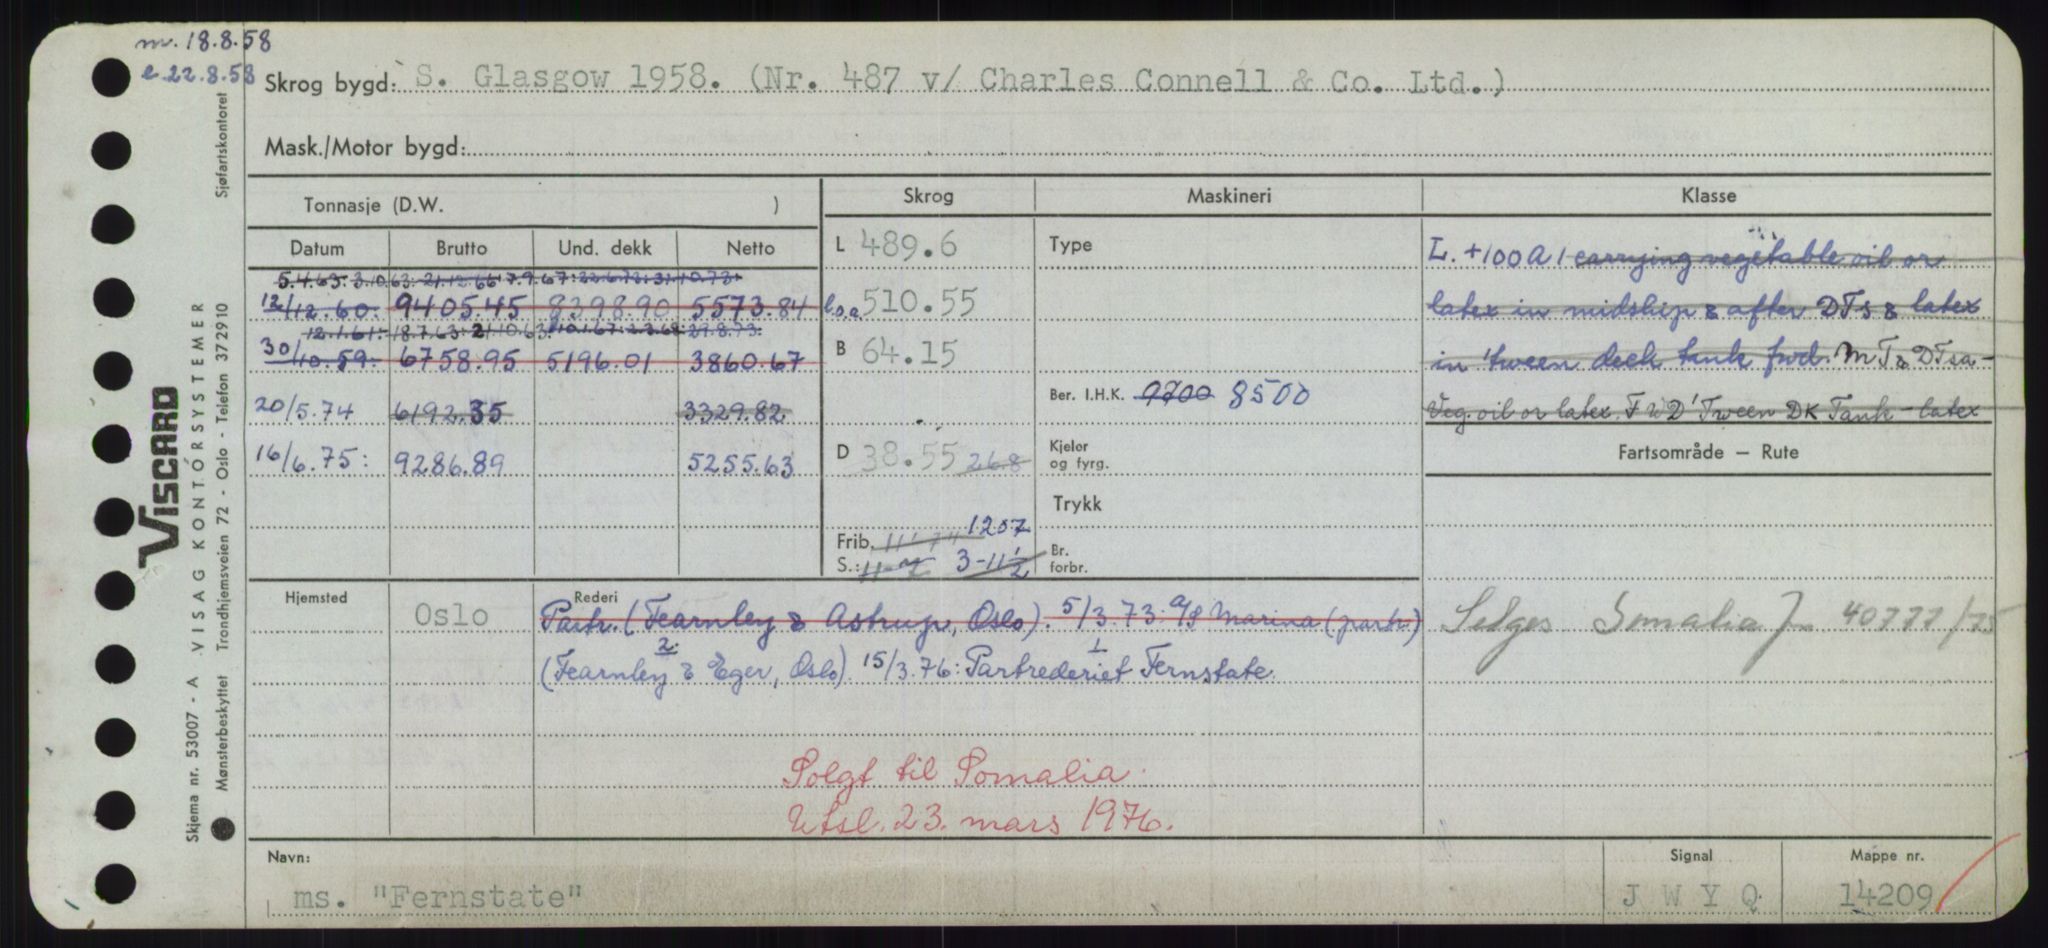 m. 18.8.58
e. 22.8.58
Skrog bygd: S. Glasgow 1958. (Nr. 487 v/ Charles Connell & Co. Ltd.)
Mask./Motor bygd:
Sjøfartskontoret
Tonnasje (D.W. )
Skrog
Maskineri
Klasse
Datum Brutto Und. dekk Netto
5.4.63: 3.10.63: 21.12.66: 7.9.67: 22.6.72: 31.10.73:
12/12.60: 9405.45 8398.90 5573.84
12.1.61: 18.7.63: 21.10.63: 10.1.67: 2.3.68: 29.8.73:
30/10.59: 6758.95 5196.01 3860.67
20/5.74 6192.35 3329.82
16/6.75: 9286.89 5255.63
L 489.6
l.o.a 510.55
B 64.15
D 38.55 268
Frib. 1207
S.: 3-11½
Type
Ber. I.H.K. 9700 8500
Kjeler og fyrg.
Trykk
Br. forbr.
L. +100A1 carrying vegetable oil or
latex in midship & after DTs & latex
in 'tween deck tank fwd. MT & DTsa-
Veg. oil or latex. FWD 'Tween DK Tank - latex
Fartsområde – Rute
Selges Somalia 40777/75
Hjemsted Oslo
Rederi
Partr. (Fearnley & Astrup, Oslo). 5/3.73: A/S Marina (partr.)
2. 1
(Fearnley & Eger, Oslo) 15/3.76: Partrederiet Fernstate
Solgt til Somalia.
Utsl. 23. mars 1976.
Navn:
ms. "Fernstate"
Signal
J W Y Q
Mappe nr.
14209
Viscard
VISAG KONTORSYSTEMER
Skjema nr. 53007 - A
Mønsterbeskyttet Trondhjemsveien 72 - Oslo - Telefon 372910